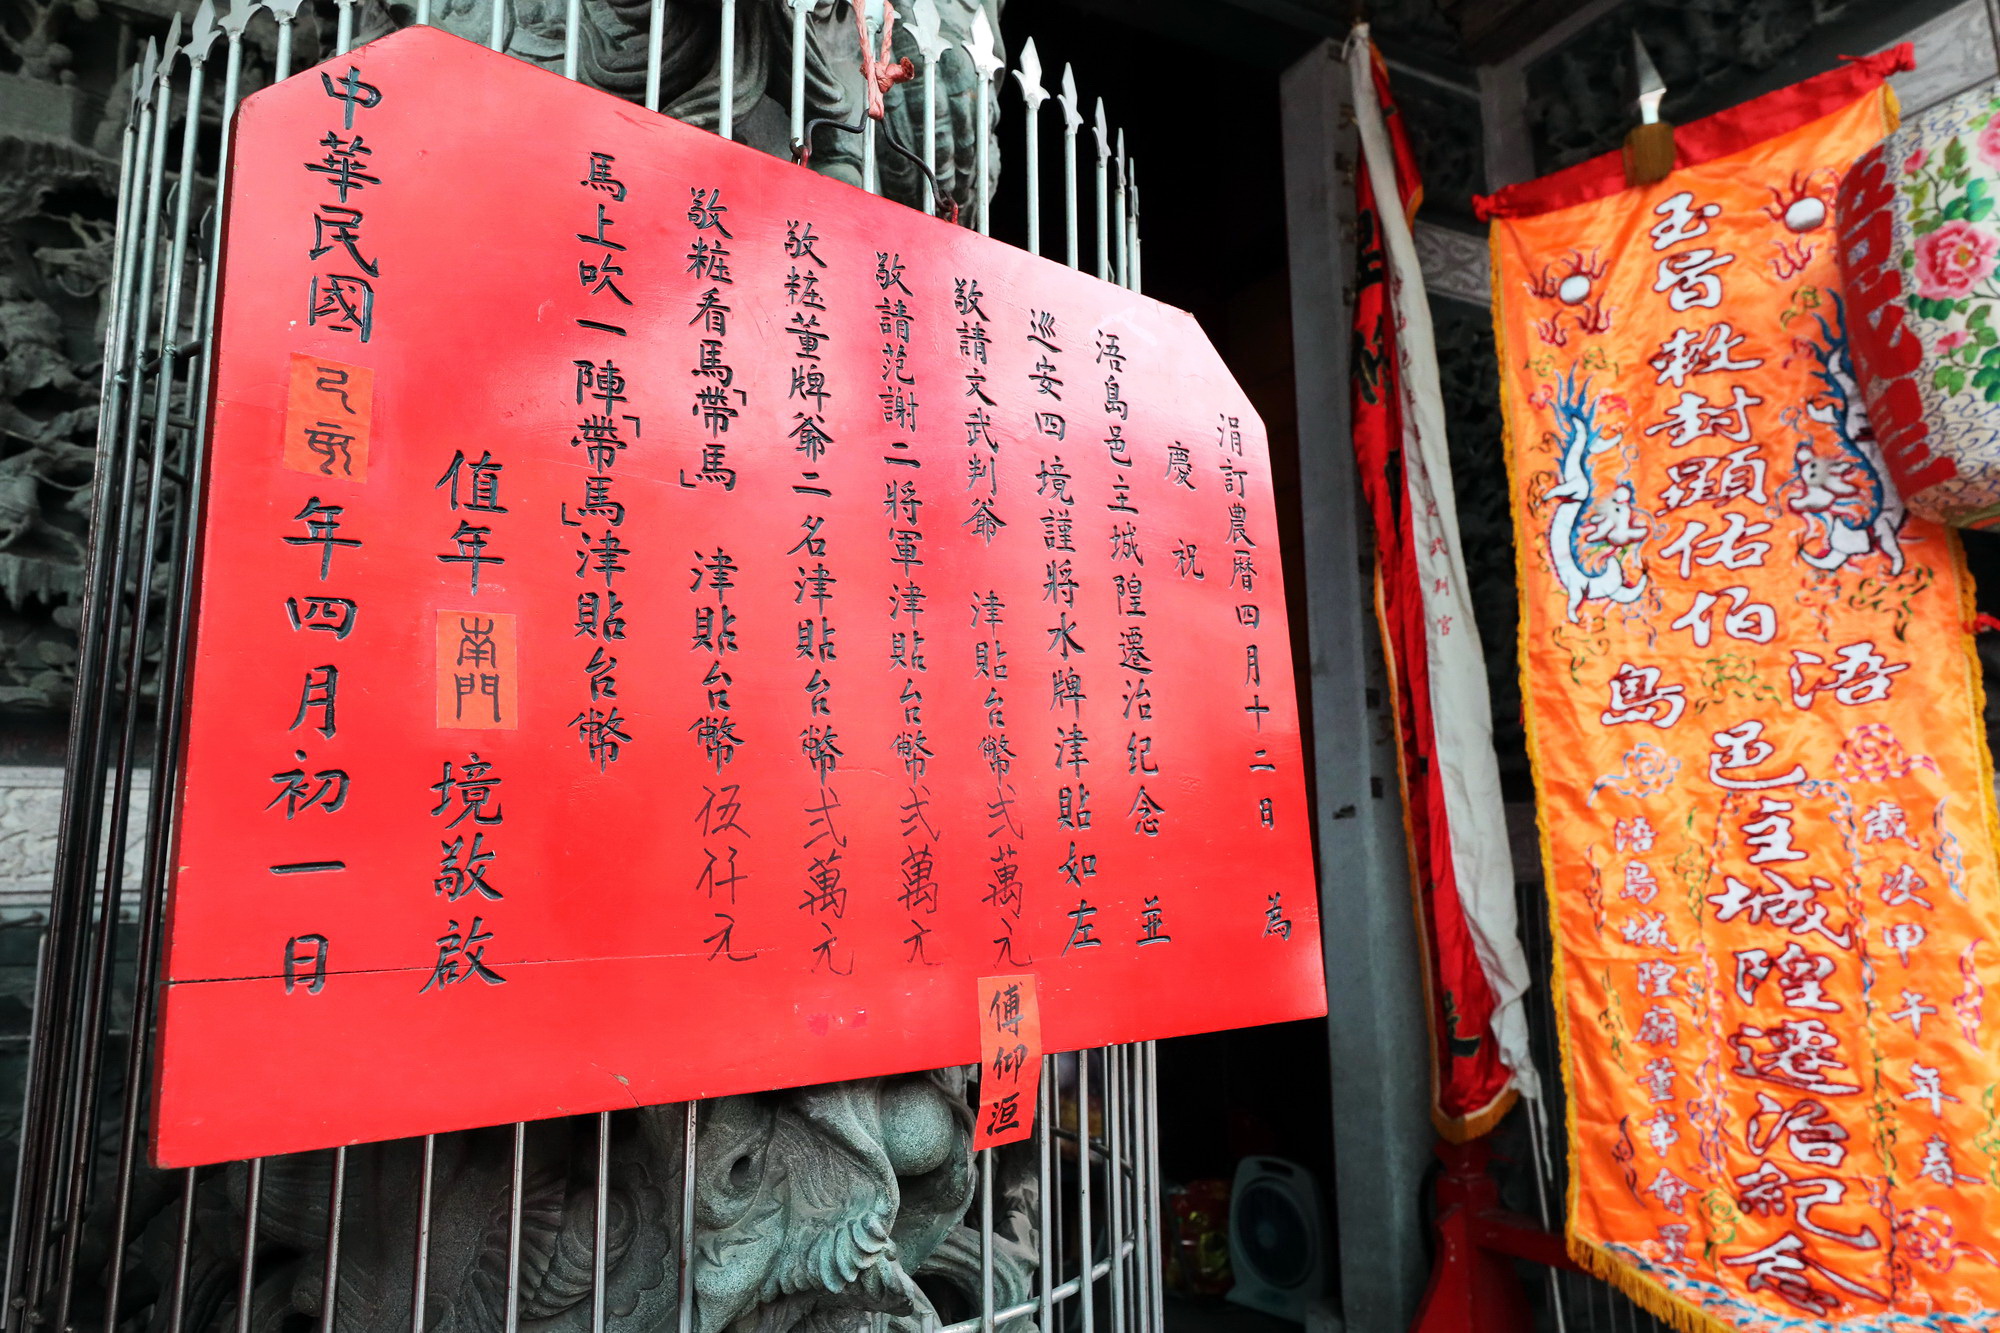 涓訂農曆四月十二日 為
慶祝
浯島邑主城隍遷治紀念 並
巡安四境謹將水牌津貼如左
敬請文武判爺 津貼台幣弍萬元
傅仰洹
敬請范謝二將軍津貼台幣弍萬元
敬粧董牌爺二名津貼台幣弍萬元
敬粧看馬「帶馬」 津貼台幣伍仟元
馬上吹一陣「帶馬」津貼台幣
值年南門境敬啟
中華民國己亥年四月初一日
玉旨敕封顯佑伯
浯島
邑主城隍遷治紀念
歲次甲午年春
浯島城隍廟董事會置